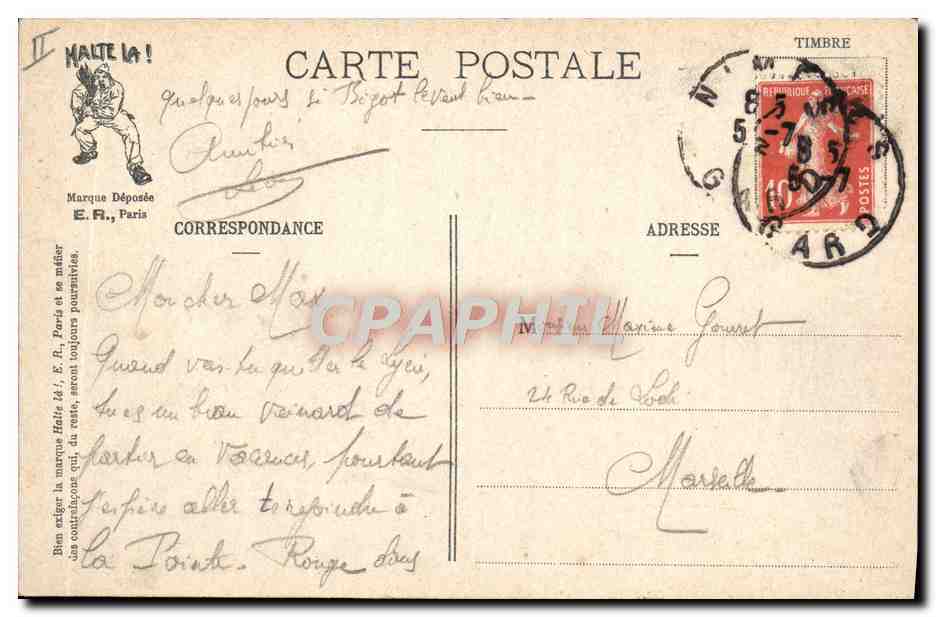 II
HALTE LA !
CARTE POSTALE
TIMBRE
Marque Déposée
E. R., Paris
CORRESPONDANCE
ADRESSE
Bien exiger la marque Halte là !, E. R., Paris et se méfier
des contrefaçons qui, du reste, seront toujours poursuivies.
Mon cher Max
Quand vas-tu quitter le Lycée,
tu es un bien veinard de
partir en Vacances, pourtant
j'espère aller te rejoindre à
la Pointe - Rouge dans
quelques jours si Bigot le veut bien -
Monsieur Maxime Gouret
24 Rue de Lodi
Marseille
REPUBLIQUE FRANÇAISE
10
POSTES
NIMES
8 5
5 -7
GARD
NIMES
8 5
5 -7
GARD
CPAPHIL